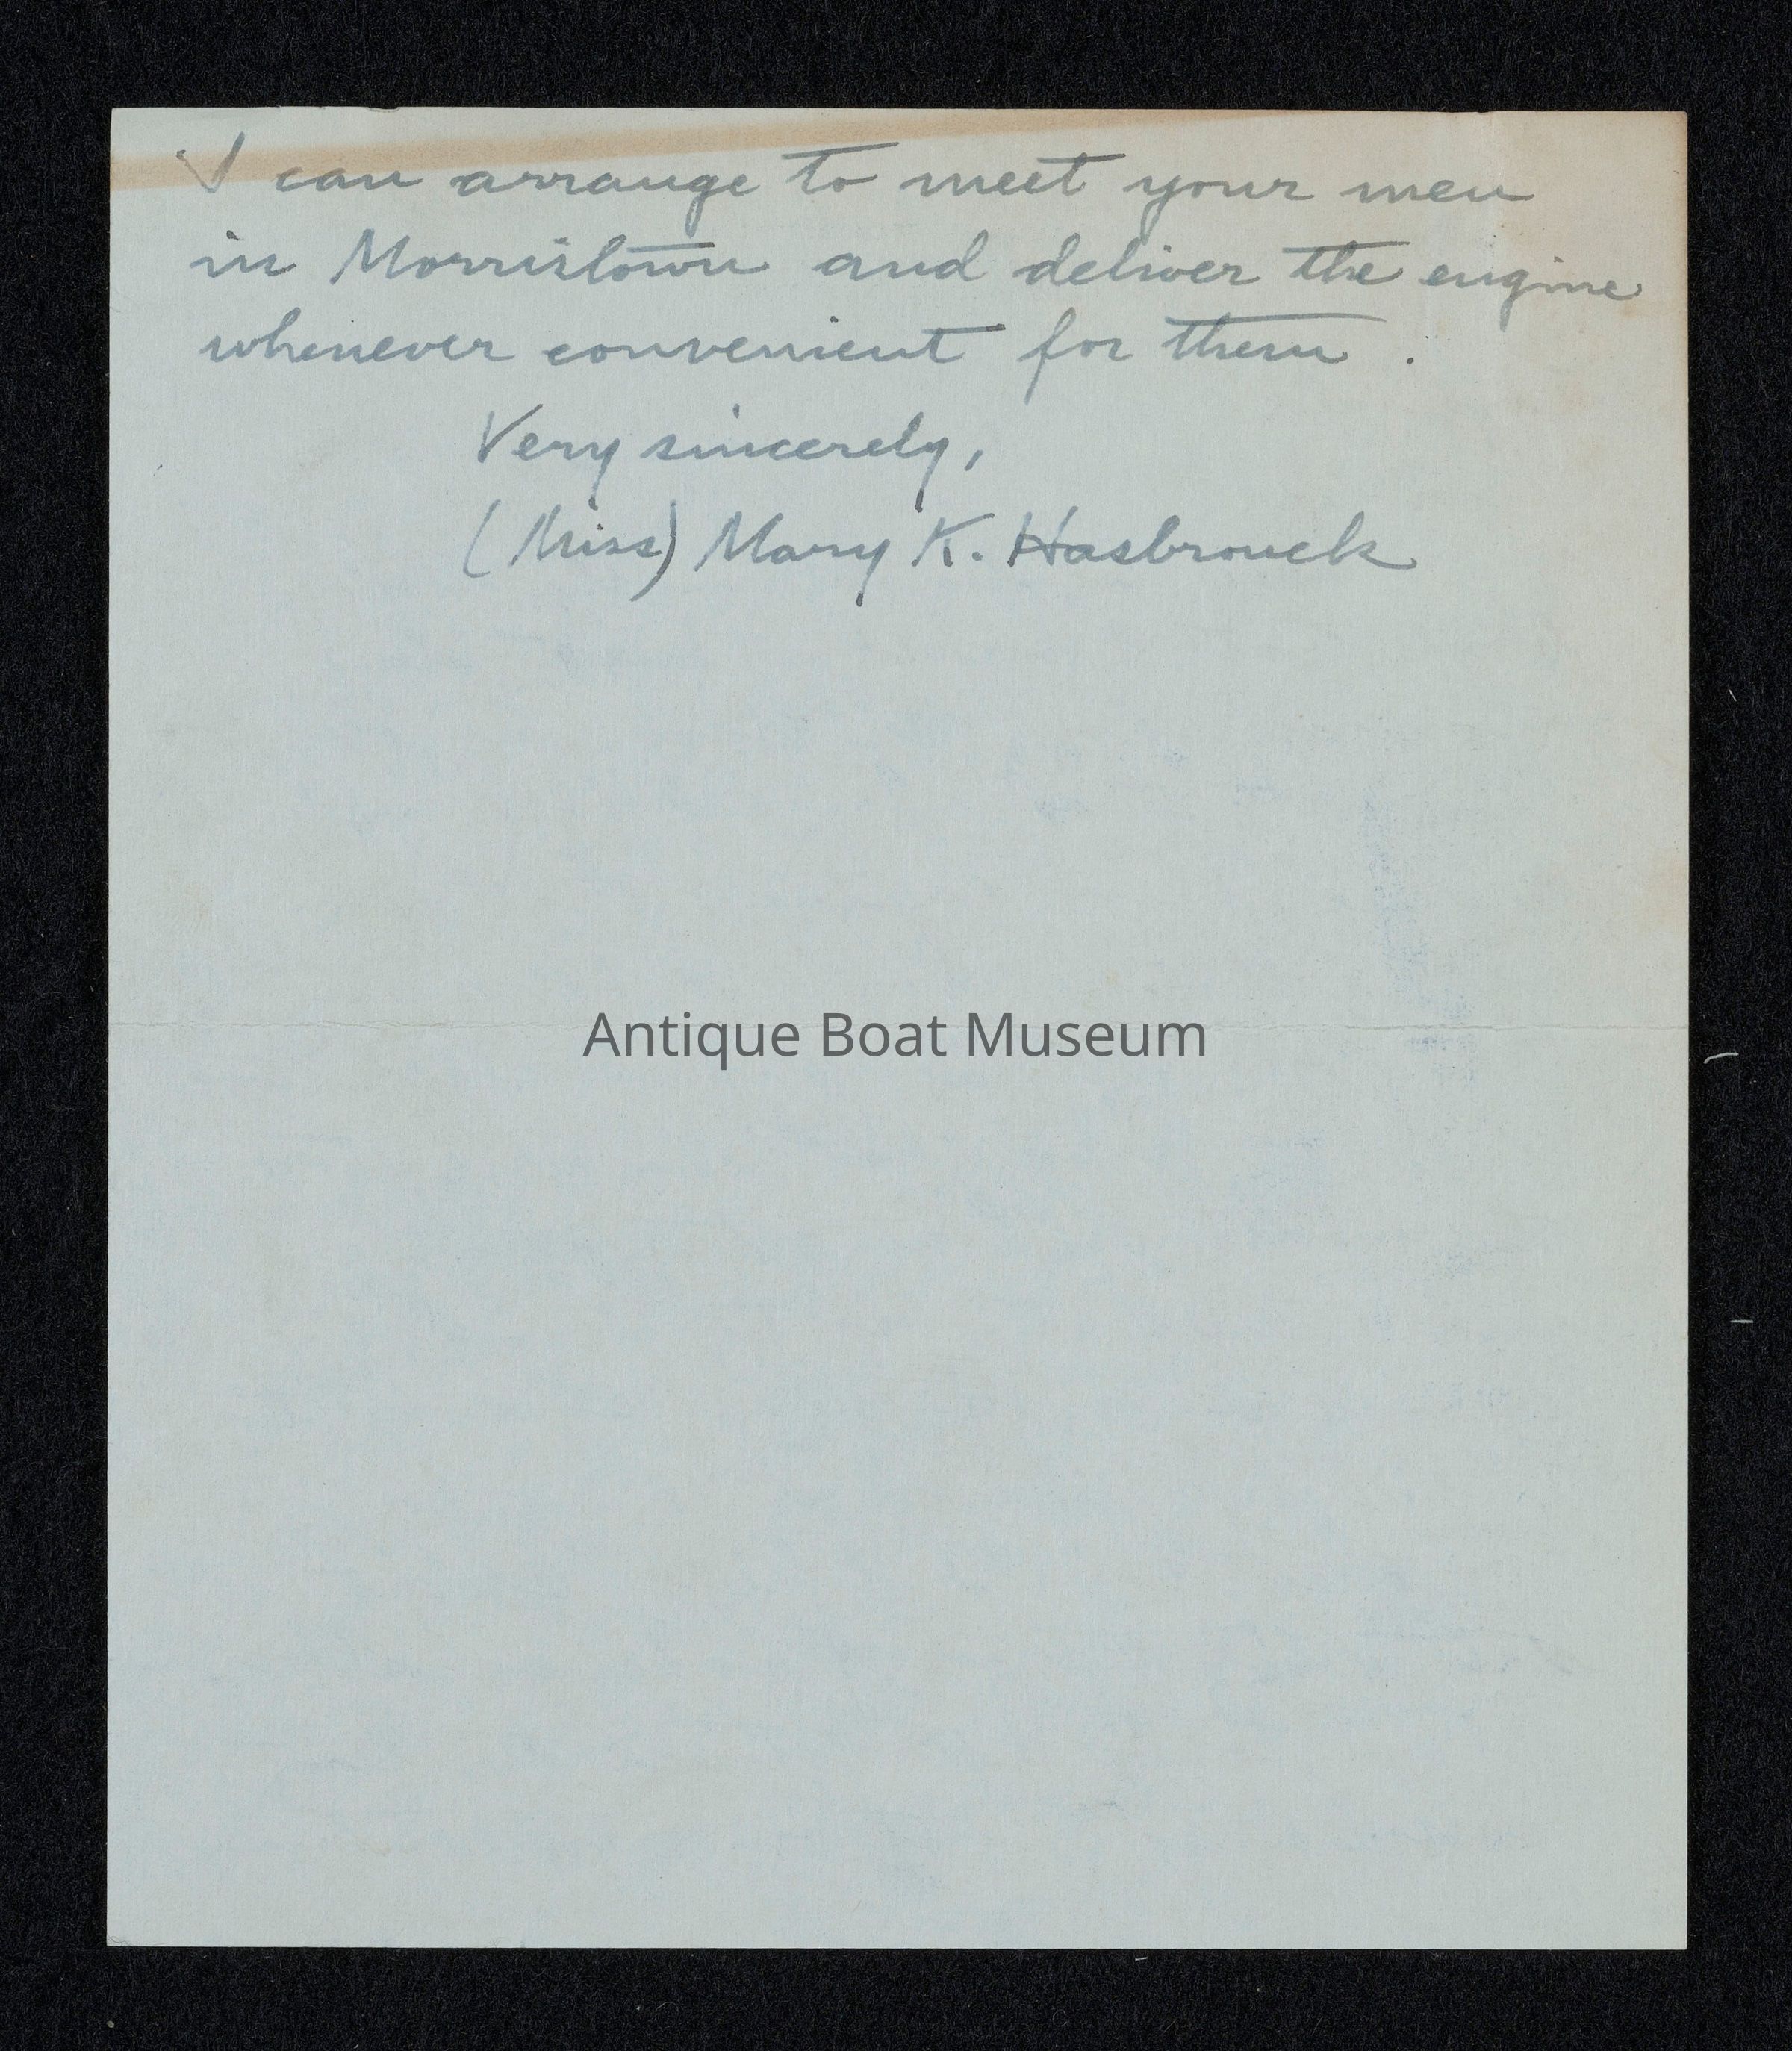 I can arrange to meet your men
in Morristown and deliver the engine
whenever convenient for them.
Very sincerely,
(Miss) Mary K. Hasbrouck
Antique Boat Museum